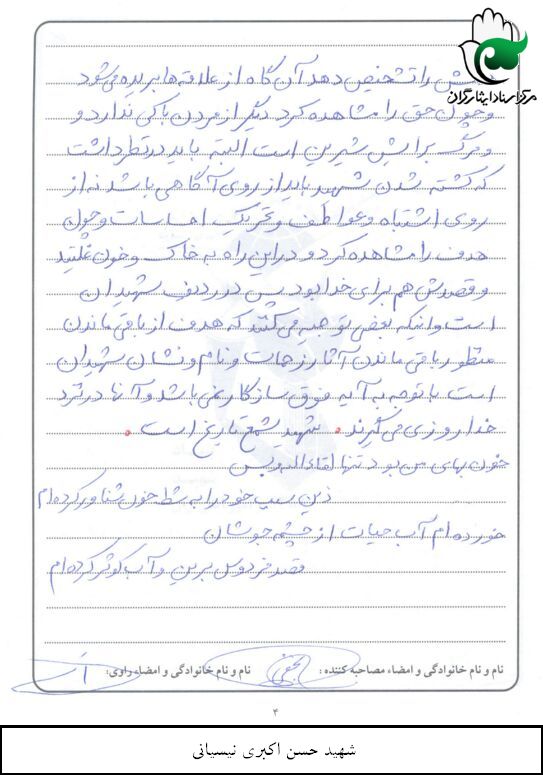 مرکز اسناد ایثارگران
را تشخیص دهد آن گاه از علاقه ها بریده می شود
و چون حق را مشاهده کرد دیگر از مردن باکی ندارد و
و مرگ برایش شیرین است البته باید در نظر داشت
که کشته شدن شهید باید از روی آگاهی باشد نه از
روی اشتباه و عواطف و تحریک احساسات و چون
هدف را مشاهده کرد و در این راه به خاک و خون غلتید
و قصدش هم برای خدا بود پس در ردیف شهیدان
است و اینکه بعضی توجیه می کنند که هدف از باقی ماندن
منظور باقی ماندن آثار زحمات و نام و نشان شهیدان
است با توجه به آیه فوق سازگار نمی باشد و آنها در نزد
خدا روزی می گیرند. شهید شمع تاریخ است.
خون بهای من بود تنها لقاء الله و بس
زین سبب خود را به شط خون شناور کرده ام
خورده ام آب حیات از چشمه جوشان
قصد فردوس برین و آب کوثر کرده ام
نام و نام خانوادگی و امضاء مصاحبه کننده :
نام و نام خانوادگی و امضاء راوی:
۴
شهید حسن اکبری نیسیانی